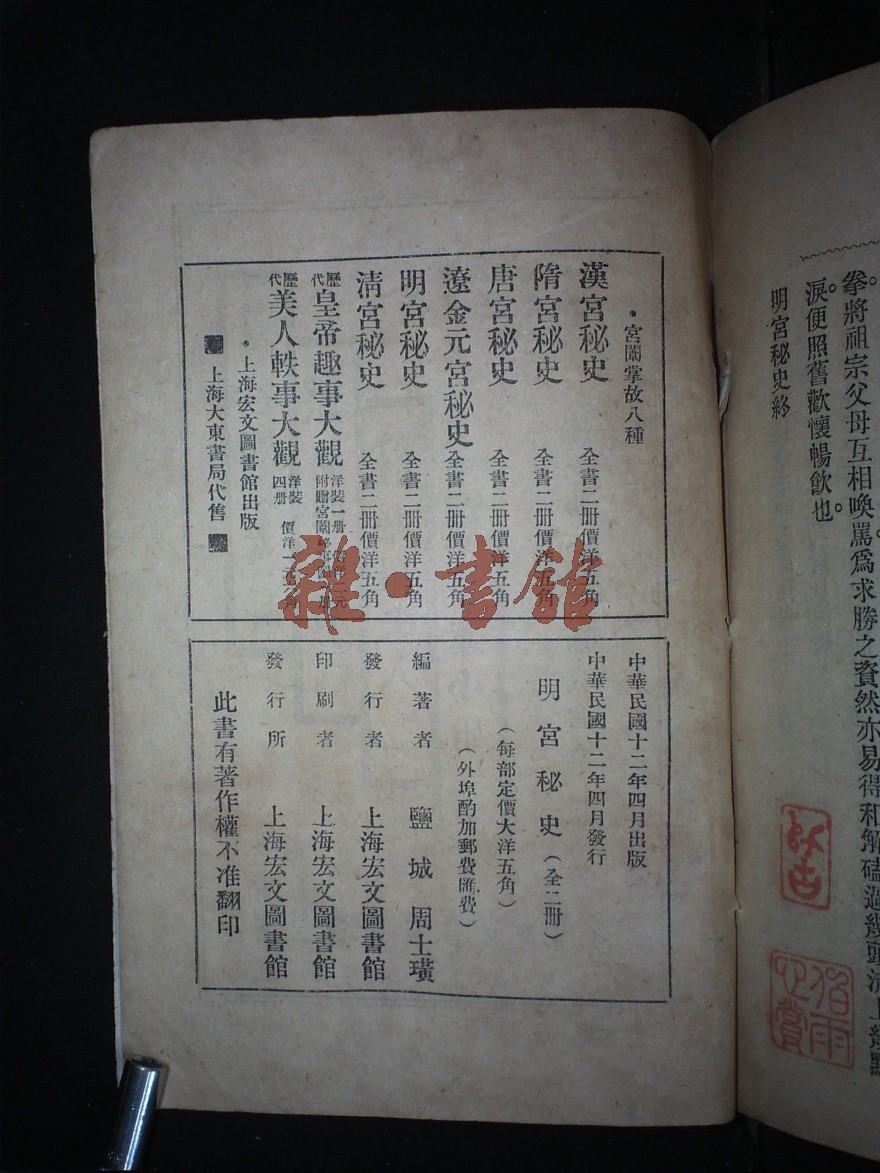 拳將祖宗父母互相喚罵爲求勝之資然亦易得和解磕過幾頭流上幾點
淚便照舊歡懷暢飲也。
明宮秘史終
宮闈掌故八種
漢宮秘史 全書二冊價洋五角
隋宮秘史 全書二冊價洋五角
唐宮秘史 全書二冊價洋五角
遼金元宮秘史 全書二冊價洋五角
明宮秘史 全書二冊價洋五角
清宮秘史 全書二冊價洋五角
歷代皇帝趣事大觀 洋裝一冊 附贈宮闈
歷代美人軼事大觀 洋裝四冊 價洋一元
上海宏文圖書館出版
上海大東書局代售
中華民國十二年四月出版
中華民國十二年四月發行
明宮秘史(全二冊)
(每部定價大洋五角)
(外埠酌加郵費匯費)
編著者 鹽城周士璜
發行者 上海宏文圖書館
印刷者 上海宏文圖書館
發行所 上海宏文圖書館
此書有著作權不准翻印
雜·書館